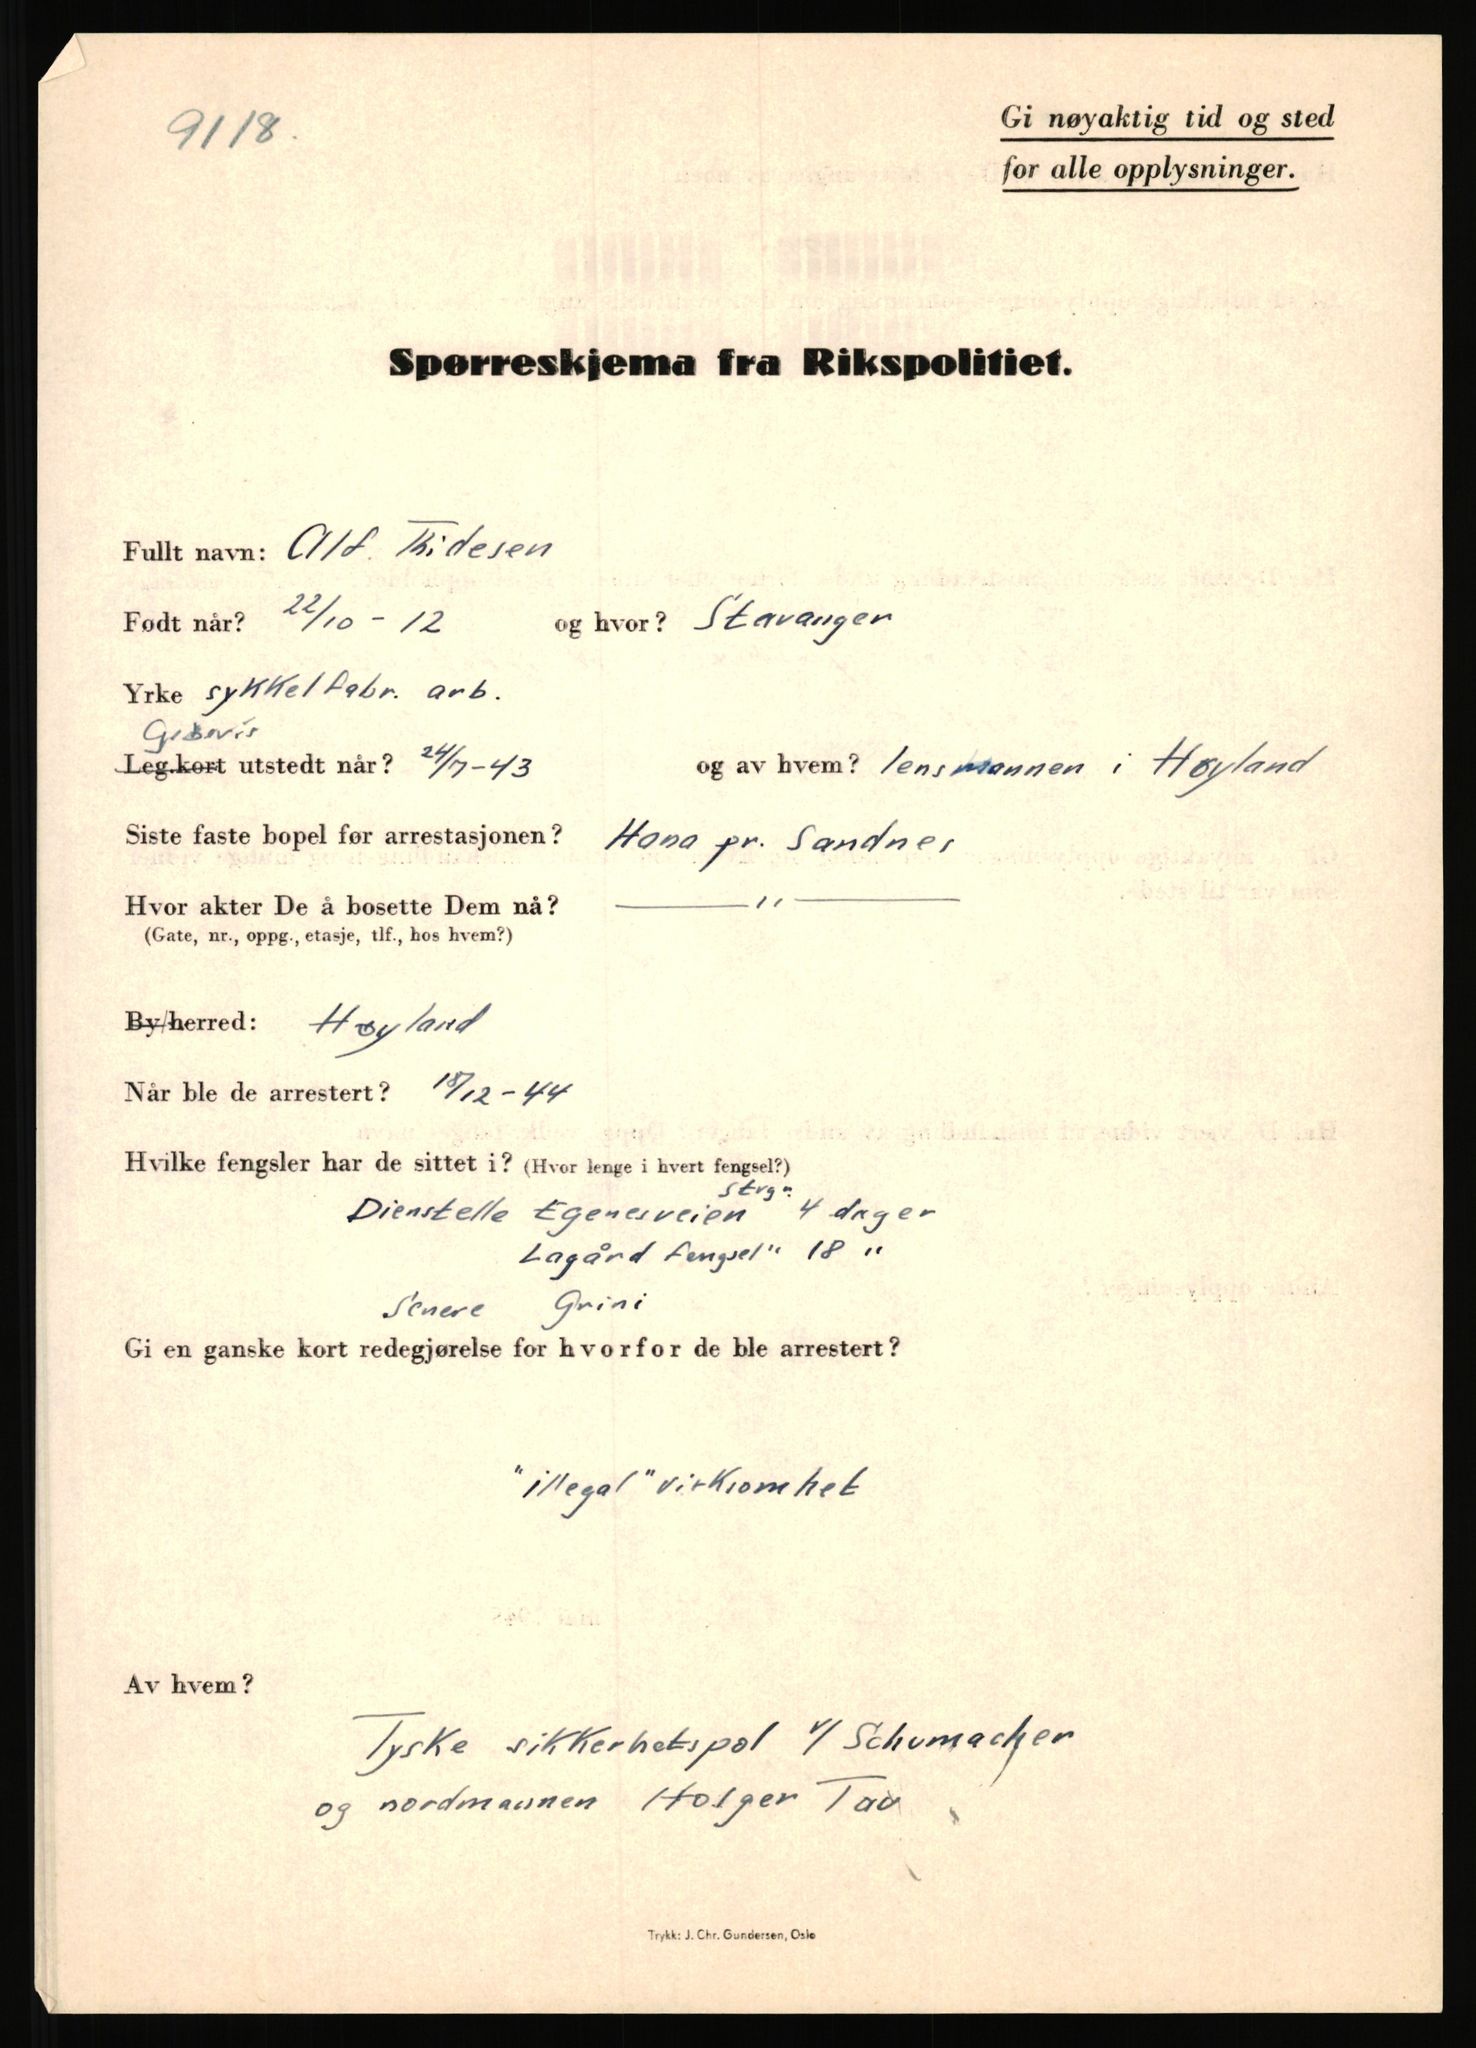 9118.
Gi nøyaktig tid og sted
for alle opplysninger.
Spørreskjema fra Rikspolitiet.
Fullt navn: Alf. Thidesen
Født når? 22/10 - 12 og hvor? Stavanger
Yrke sykkelfabr. arb.
Grbevis
Leg.kort utstedt når? 24/7-43 og av hvem? lensmannen i Høyland
Siste faste bopel før arrestasjonen? Hana pr. Sandnes
Hvor akter De å bosette Dem nå? — " —
(Gate, nr., oppg., etasje, tlf., hos hvem?)
By/herred: Høyland
Når ble de arrestert? 18/12-44
Hvilke fengsler har de sittet i? (Hvor lenge i hvert fengsel?)
Strgr.
Dienstelle Egenesveien 4 dager
Lagård fengsel " 18 "
Senere Grini
Gi en ganske kort redegjørelse for hvorfor de ble arrestert?
"illegal" virksomhet
Av hvem?
Tyske sikkerhetspol v/ Schumacher
og nordmannen Holger Tou
Trykk: J. Chr. Gundersen, Oslo